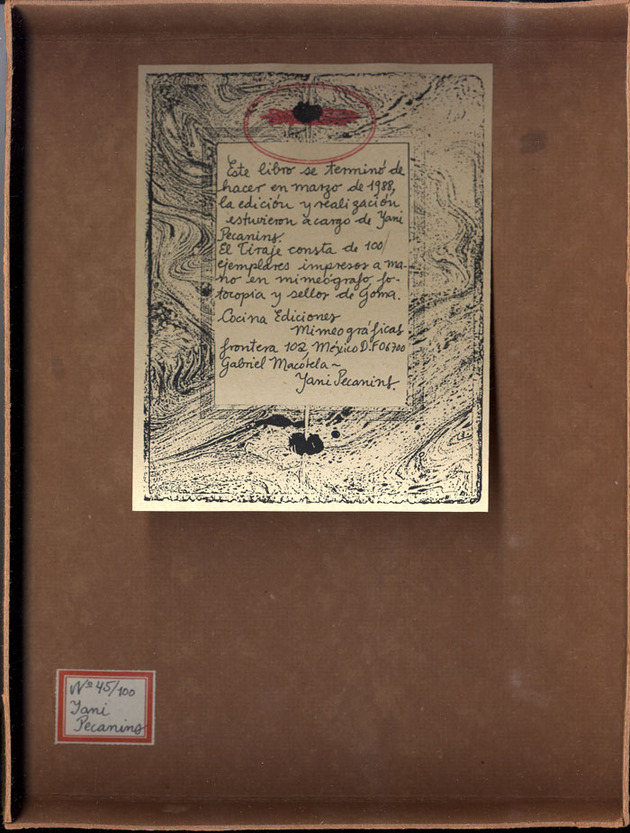 Este libro se terminó de
hacer en marzo de 1988,
la edición y realización
estuvieron a cargo de Yani
Pecanins.
El Tiraje consta de 100
ejemplares impresos a ma-
no en mimeógrafo, fo-
tocopia y sellos de Goma.
Cocina Ediciones
Mimeográficas
frontera 102, México D.F 06700
Gabriel Macotela ~
Yani Pecanins.
Nº 45/100
Yani
Pecanins